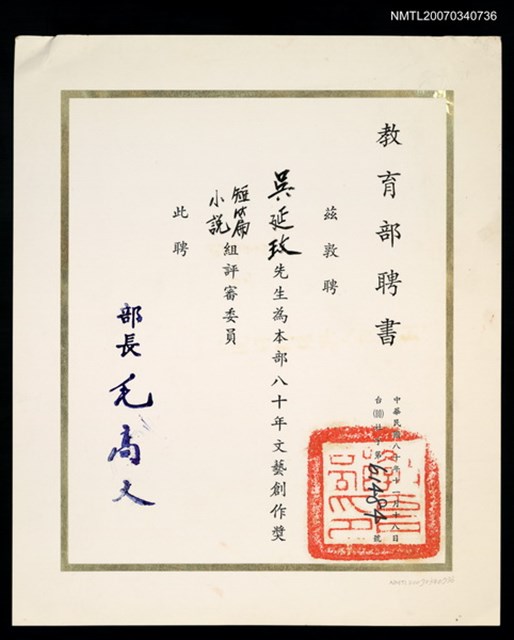 NMTL20070340736
教育部聘書
中華民國八十年十一月十八日
台(80)社字第61484號
茲敦聘
吳延玫先生為本部八十年文藝創作獎
短篇小說組評審委員
此聘
部長毛高文